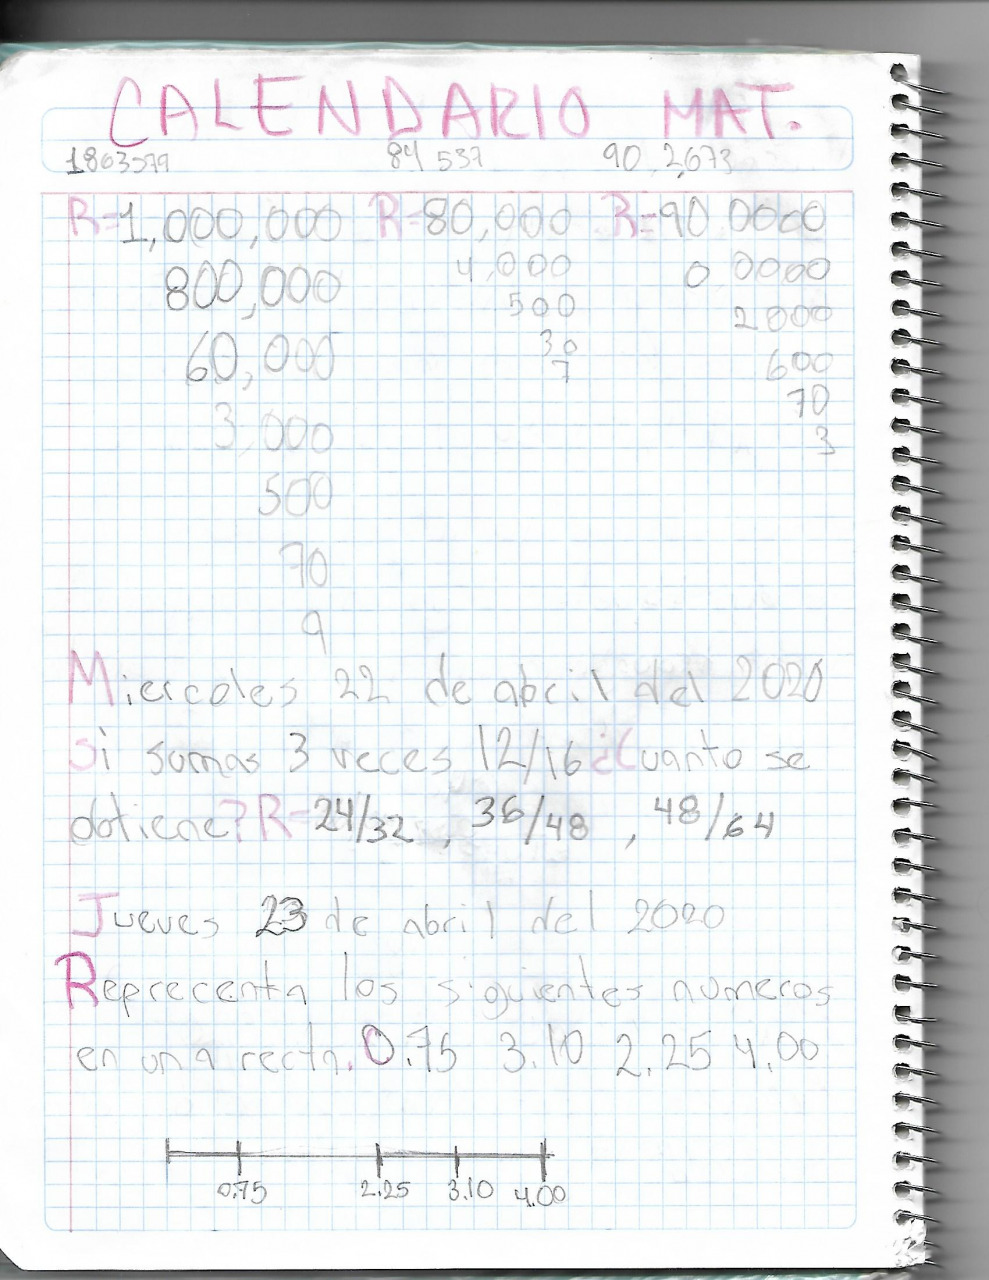 CALENDARIO MAT.
1863579 84 537 90 2,673
R=1,000,000 R=80,000 R=90 0000
800,000 4,000 0 0000
60,000 500 2000
3 000 30 600
500 7 70
70 3
9
Miercoles 22 de abril del 2020
Si sumas 3 veces 12/16 ¿Cuanto se
obtiene? R=24/32, 36/48, 48/64
Jueves 23 de abril del 2020
Reprecenta los siguientes numeros
en una recta. 0.75 3.10 2.25 4.00
0.75 2.25 3.10 4.00